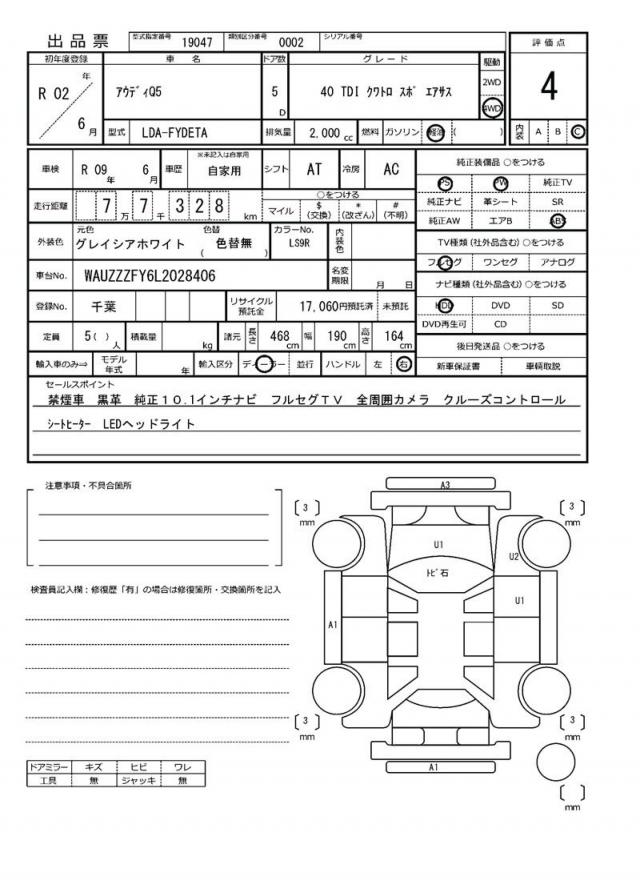 出品票 型式指定番号 19047 類別区分番号 0002 シリアル番号
初年度登録 車名 ドア数 グレード 駆動 評価点
R 02 年 6 月 アウディQ5 5 D 40 TDI クワトロ スポ エアサス 2WD 4WD 4
型式 LDA-FYDETA 排気量 2,000 cc 燃料 ガソリン 軽油 ( ) 内装 A B C
車検 R 09 年 6 月 車歴 ※未記入は自家用 自家用 シフト AT 冷房 AC
純正装備品 ○をつける
PS PW 純正TV
純正ナビ 革シート SR
純正AW エアB ABS
走行距離 7 7 万 7 千 3 2 8 km
○をつける
マイル $ (交換) * (改ざん) # (不明)
外装色 元色 グレイシアホワイト 色替 ( 色替無 ) カラーNo. LS9R 内装色
TV種類 (社外品含む) ○をつける
フルセグ ワンセグ アナログ
車台No. WAUZZZFY6L2028406 名変期限 月 日
ナビ種類 (社外品含む) ○をつける
HDD DVD SD
DVD再生可 CD
登録No. 千葉 リサイクル預託金 17,060円預託済 未預託
定員 5 ( ) 人 積載量 kg 諸元 長さ 468 cm 幅 190 cm 高さ 164 cm
後日発送品 ○をつける
新車保証書 車輌取説
輸入車のみ⇒ モデル年式 年 輸入区分 ディーラー 並行 ハンドル 左 右
セールスポイント
禁煙車 黒革 純正10.1インチナビ フルセグTV 全周囲カメラ クルーズコントロール
シートヒーター LEDヘッドライト
注意事項・不具合箇所
検査員記入欄:修復歴「有」の場合は修復箇所・交換箇所を記入
A3
3 mm
3 mm
U1
U2
トビ石
U1
A1
3 mm
3 mm
A1
mm
ドアミラー キズ ヒビ ワレ
工具 無 ジャッキ 無